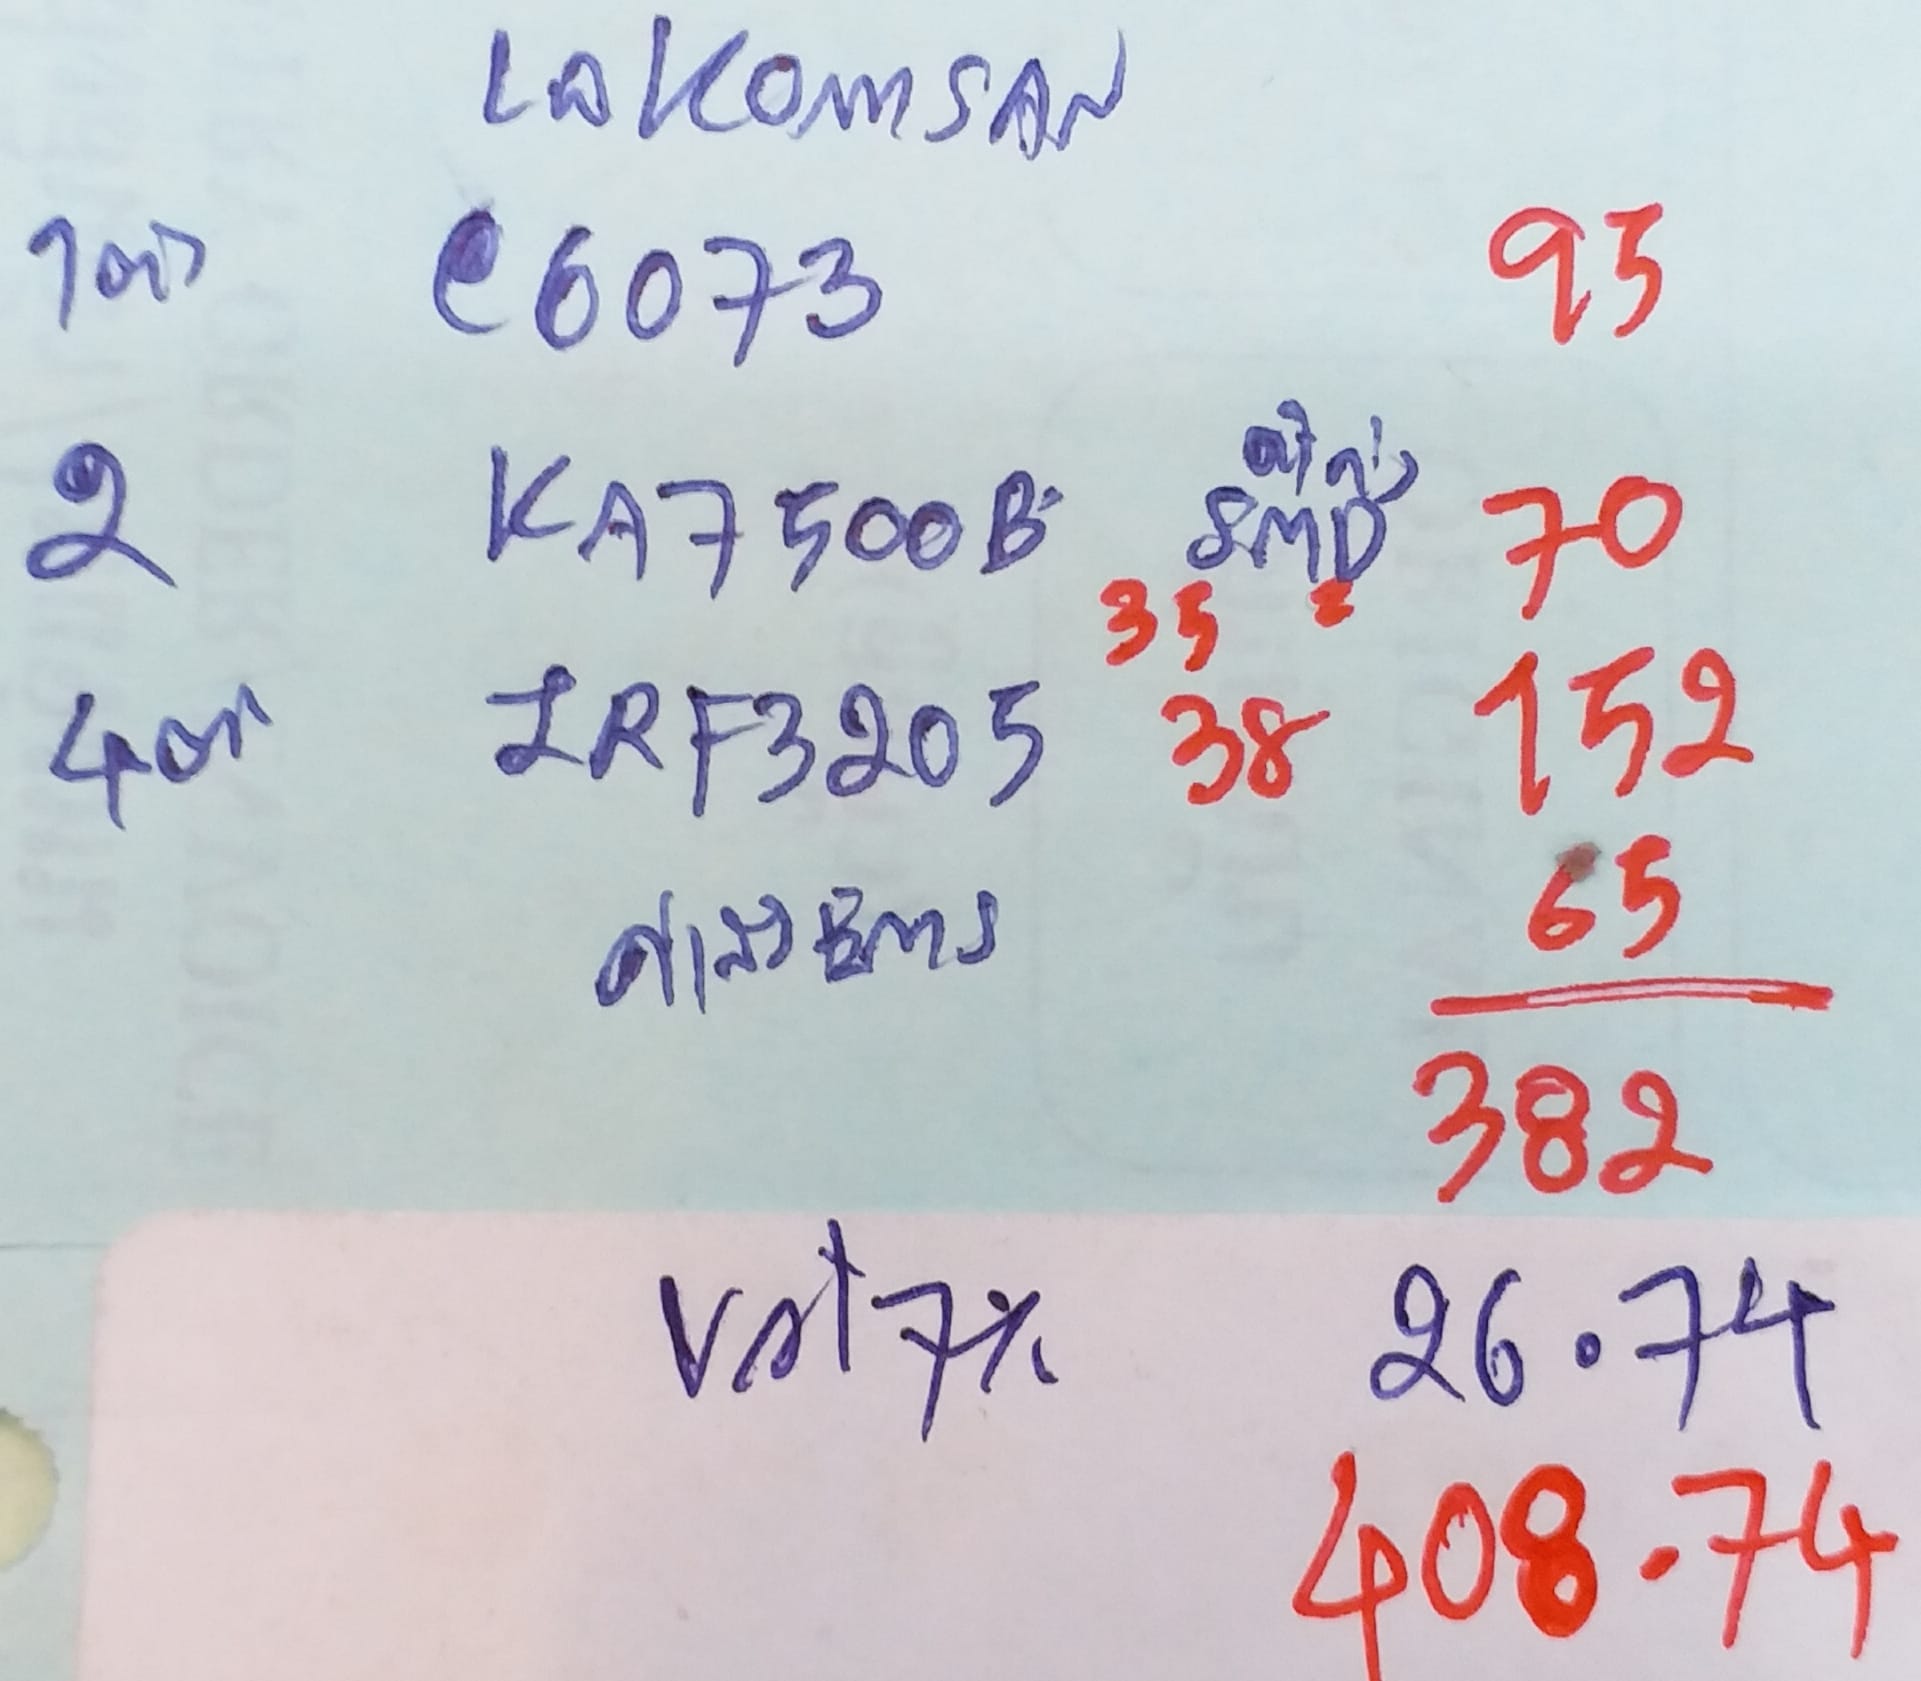 LAKOMSAN
1ตัว C6073 95
2 KA7500B SMD 70
35
4ตัว IRF3205 38 152
ค่าส่ง EMS 65
382
Vat 7% 26.74
408.74